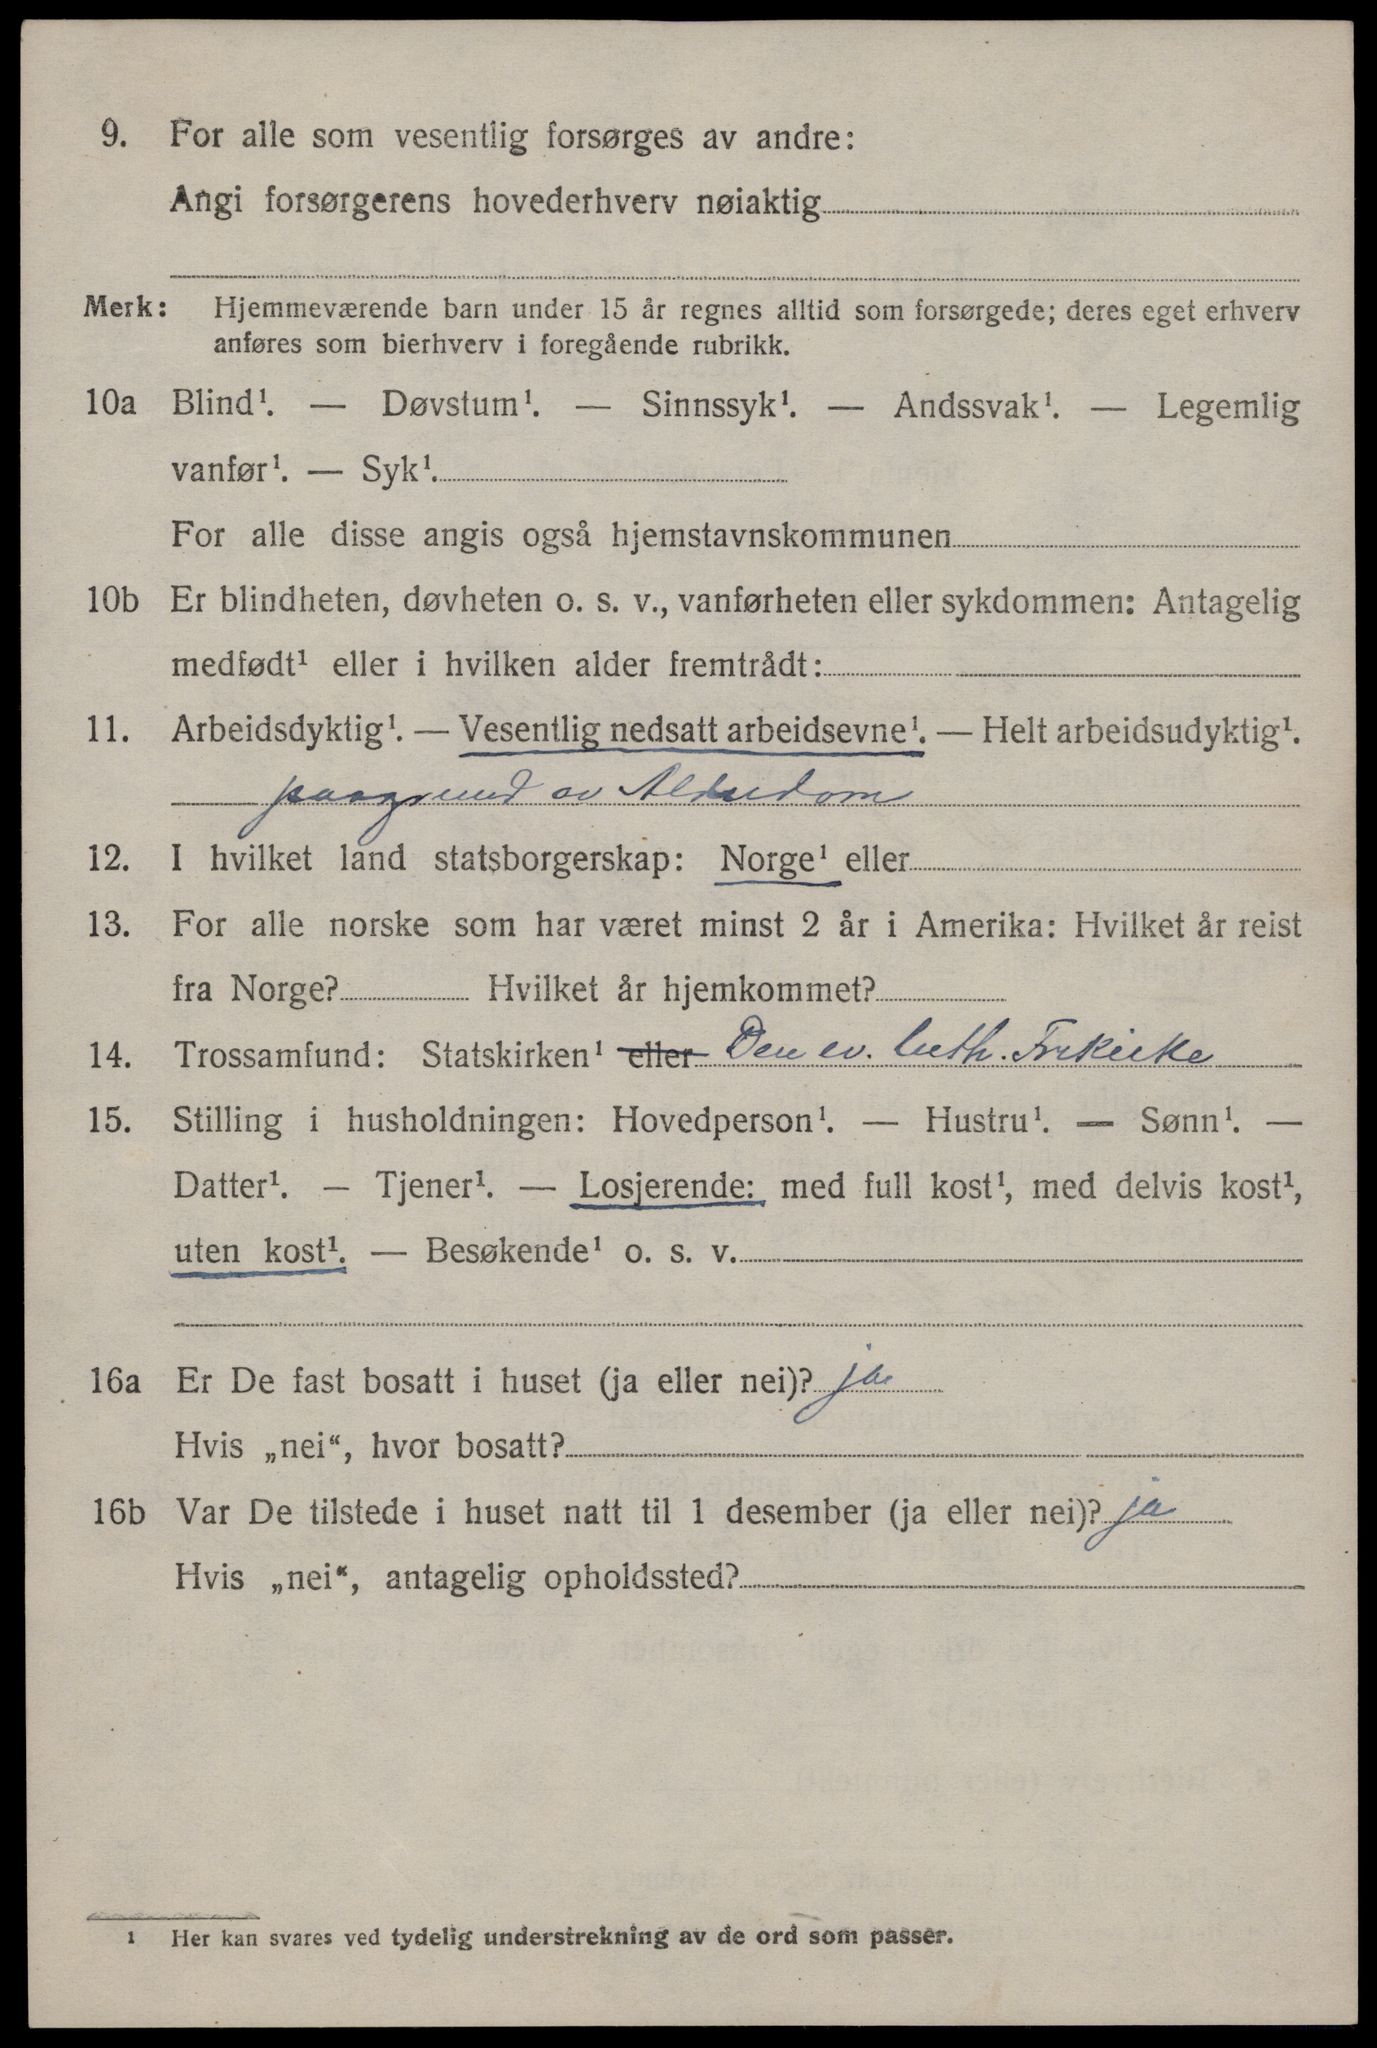 9. For alle som vesentlig forsørges av andre:
Angi forsørgerens hovederhverv nøiaktig
Merk: Hjemmeværende barn under 15 år regnes alltid som forsørgede; deres eget erhverv
anføres som bierhverv i foregående rubrikk.
10a Blind¹. — Døvstum¹. — Sinnssyk¹. — Andssvak¹. — Legemlig
vanfør¹. — Syk¹.
For alle disse angis også hjemstavnskommunen
10b Er blindheten, døvheten o. s. v., vanførheten eller sykdommen: Antagelig
medfødt¹ eller i hvilken alder fremtrådt:
11. Arbeidsdyktig¹. — Vesentlig nedsatt arbeidsevne¹. — Helt arbeidsudyktig¹.
paagrund av Alderdom
12. I hvilket land statsborgerskap: Norge¹ eller
13. For alle norske som har været minst 2 år i Amerika: Hvilket år reist
fra Norge? Hvilket år hjemkommet?
14. Trossamfund: Statskirken¹ eller Den ev. luth. Frikirke
15. Stilling i husholdningen: Hovedperson¹. — Hustru¹. — Sønn¹. —
Datter¹. — Tjener¹. — Losjerende: med full kost¹, med delvis kost¹,
uten kost¹. — Besøkende¹ o. s. v.
16a Er De fast bosatt i huset (ja eller nei)? ja
Hvis „nei“, hvor bosatt?
16b Var De tilstede i huset natt til 1 desember (ja eller nei)? ja
Hvis „nei“, antagelig opholdssted?
1 Her kan svares ved tydelig understrekning av de ord som passer.